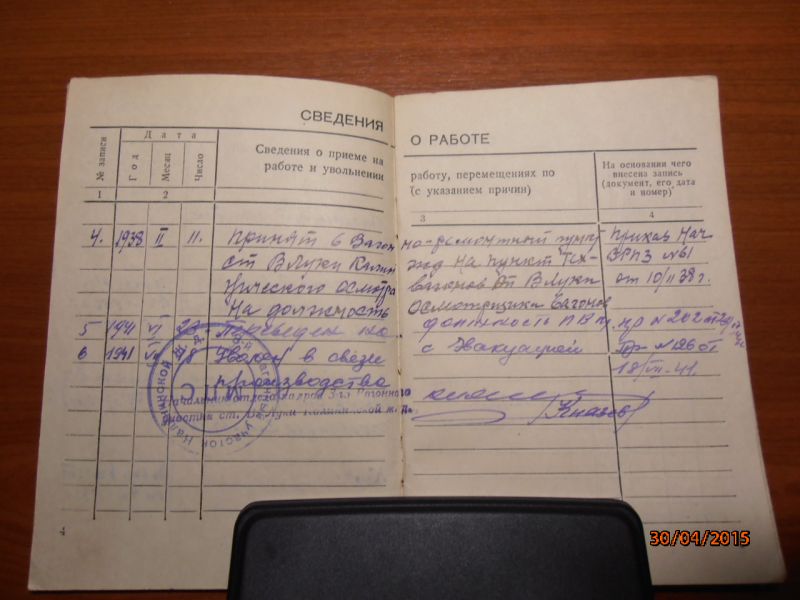 СВЕДЕНИЯ О РАБОТЕ
№ записи
Дата
Год
Месяц
Число
Сведения о приеме на работу, перемещениях по
работе и увольнении (с указанием причин)
На основании чего
внесена запись
(документ, его дата
и номер)
1 2 3 4
4. 1938 II 11. Принят в Вагоно-ремонтный пункт Приказ Нач
ст ВЛуки на пункт Тех ВРПЗ №61
нического осмотра вагонов ст ВЛуки от 10/II 38г.
на должность Осмотрщика вагонов
5 1941 VI Переведен на должность пр №202
6 1941 VII 18 Уволен в связи с Эвакуацией Пр №126 от
производства 18/VII-41
Начальник отдела кадров 3-го Вагонного
участка ст. В-Луки Калининской ж. д.
Князев
30/04/2015